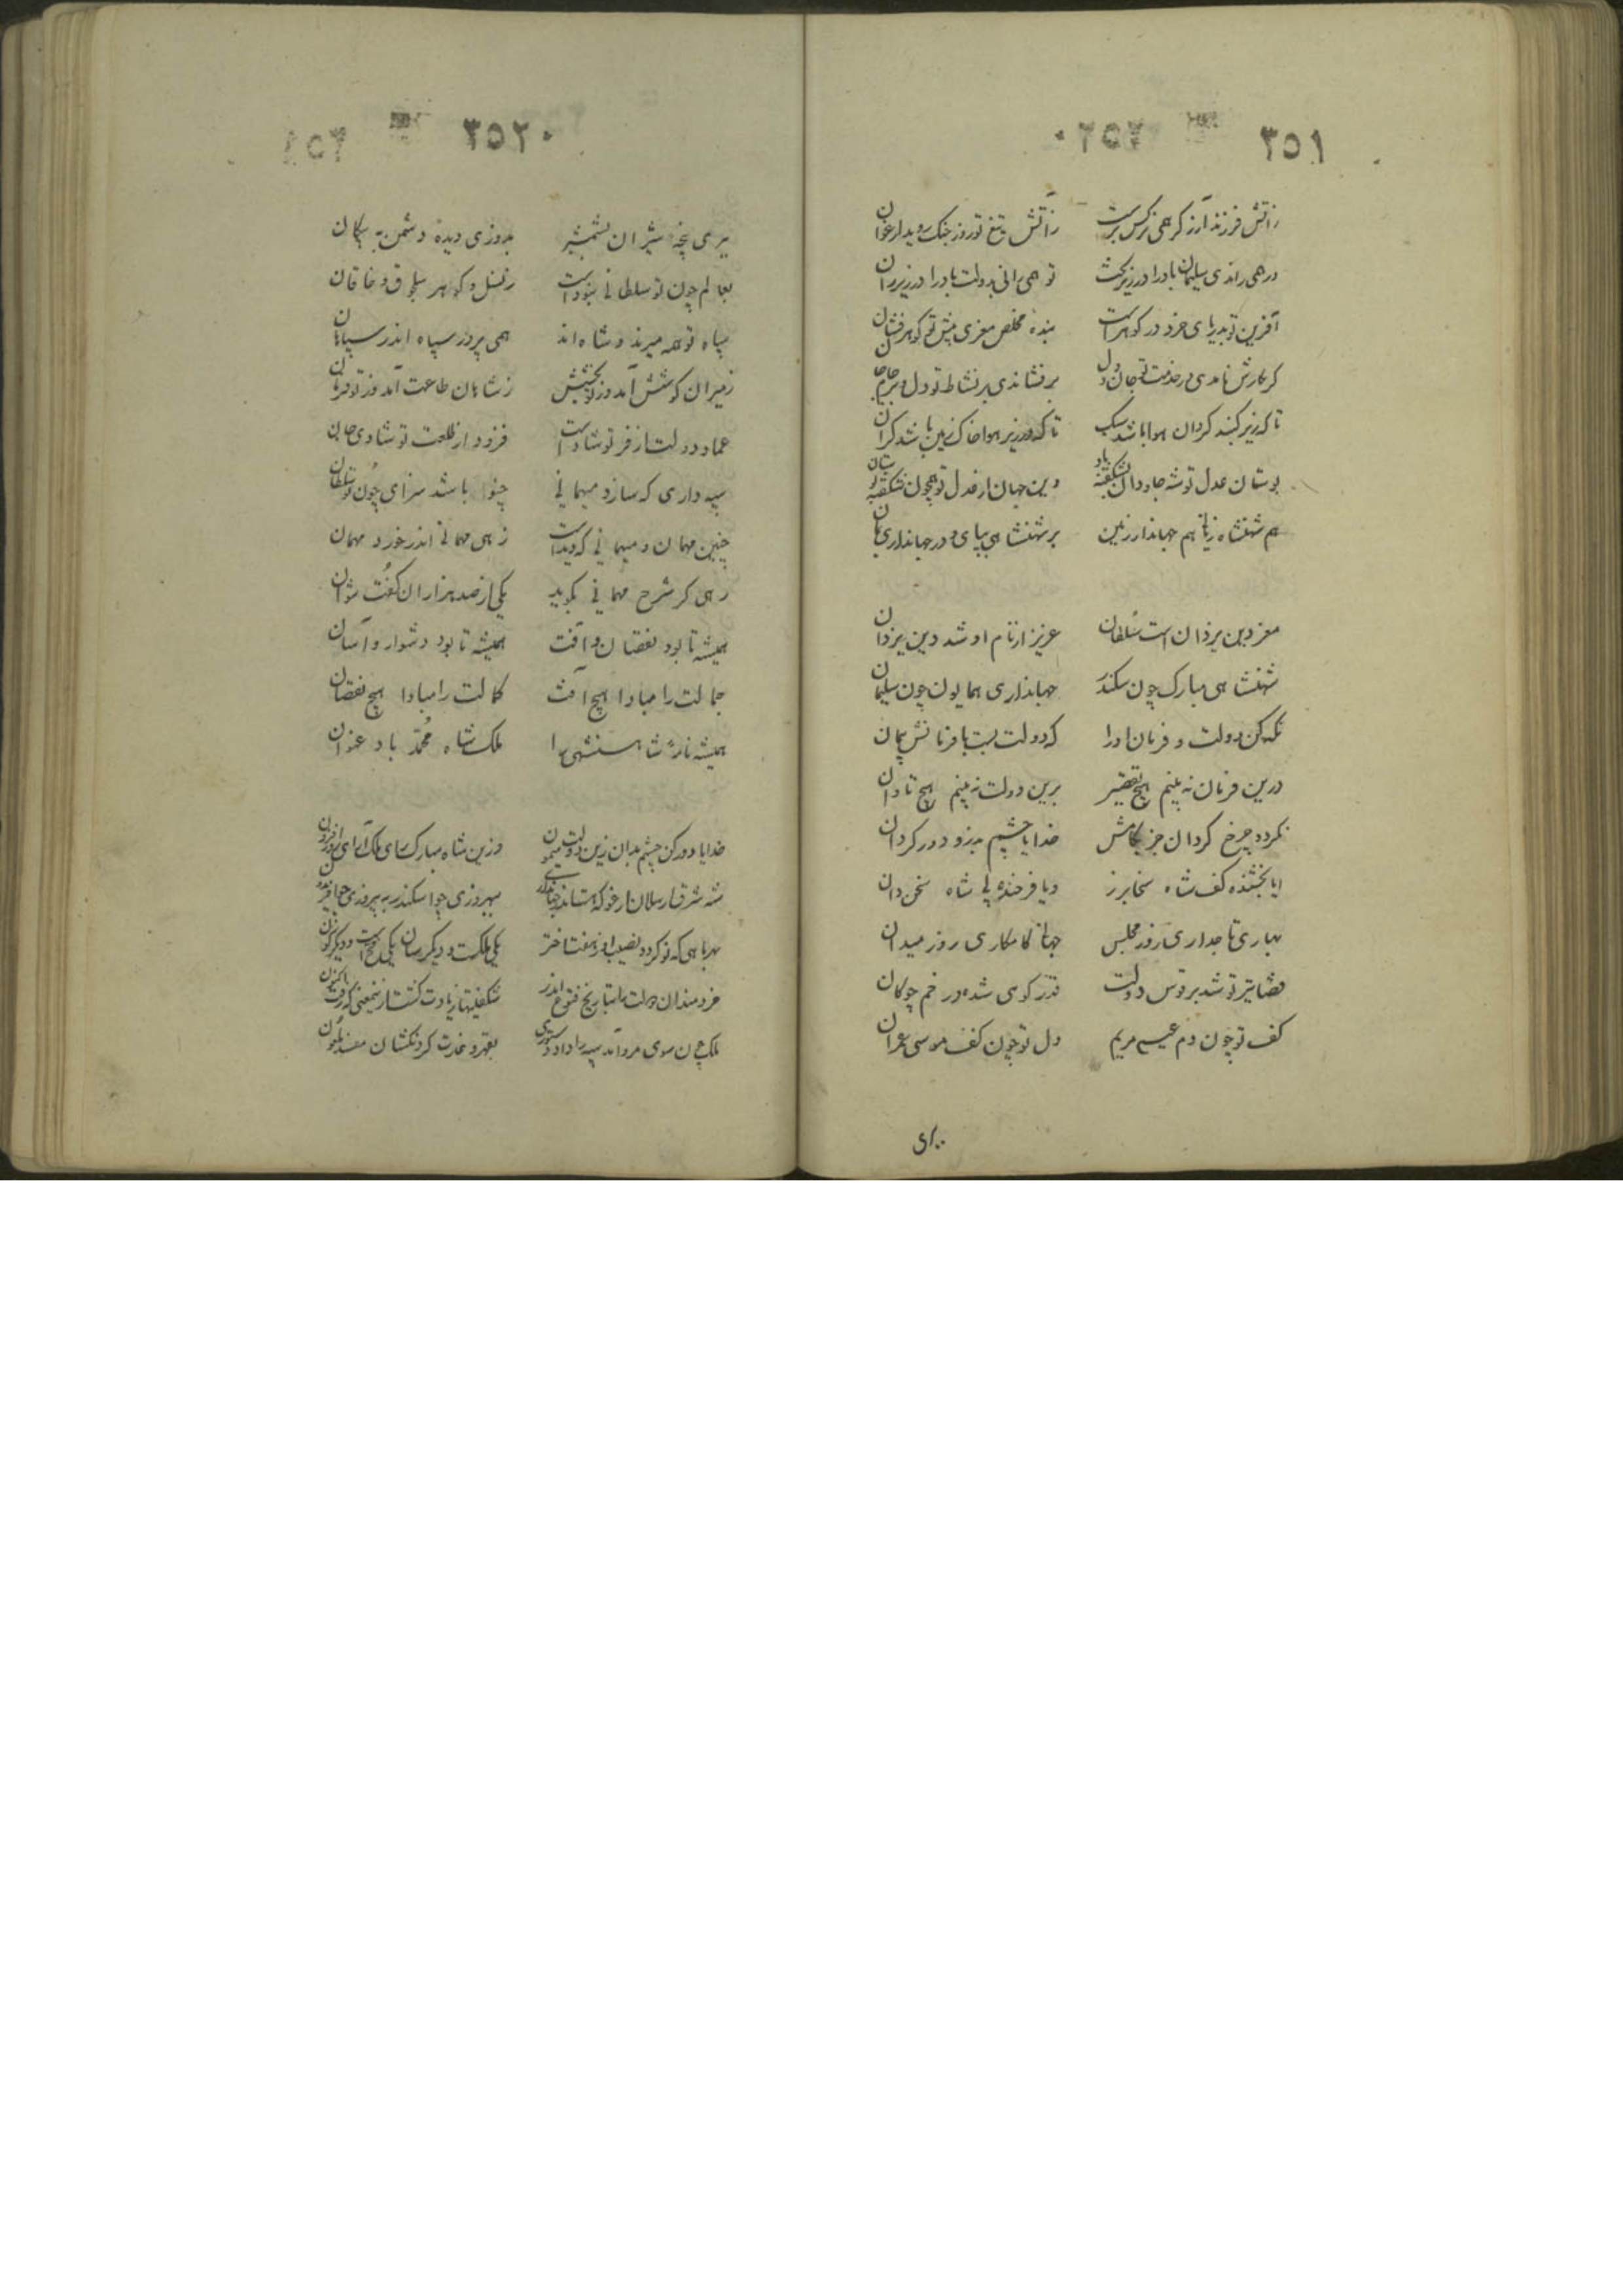 ٣٥١
زآتش فرزند آزر گر همی نرگس برست زآتش تیغ تو روز جنگ روید ارغوان
در همی راندی سلیمان باد را در زیر تخت تو همی رانی بدولت باد را در زیر ران
آفرین تو بدریای خرد در گوهرست بنده مخلص معزی پیش تو گوهرفشان
گر بکارش نامدی در خدمت تو جان و دل برفشاندی بر نشاط تو دل و بر جام جان
تا که زیر گنبد گردان هوا باشد سبک تا که در زیر هوا خاک زمین باشد گران
بوستان عدل تو شه جاودان بشکفته باد وین جهان از عدل تو همچون شکفته بوستان
هم شهنشاه زمانی هم جهاندار زمین بر شهنشاهی بپای و در جهانداری بمان
معز دین یزدان است سلطان عزیز از نام او شد دین یزدان
شهنشاهی مبارک چون سکندر جهانداری همایون چون سلیمان
نگه کن دولت و فرمان او را که دولت بست با فرمانش پیمان
درین فرمان نه بینم هیچ تقصیر برین دولت نه بینم هیچ تاوان
نگردد چرخ گردان جز بکامش خدایا چشم بد زو دور گردان
ایا بخشنده کف شاه سخا برز ویا فرخنده پی شاه سخن دان
بهاری تاجداری روز مجلس جهانی کامکاری روز میدان
قضا تیر تو شد بر قوس دولت قدر گوی شده در خم چوگان
کف تو چون دم عیسی مریم دل تو چون کف موسی عمران
٣٥٢
ببری پنجه شیران بشمشیر بدوزی دیده دشمن به پیکان
بعالم چون تو سلطانی نبوداست ز نسل و گوهر سلجوق و خاقان
سپاه تو همه میرند و شاه‌اند همی پرور سپاه اندر سپاهان
ز میران کوشش آمد وز تو بخشش ز شاهان طاعت آمد وز تو فرمان
عماد دولت از فر تو شاد است فزود از طلعت تو شادی جان
سپه‌داری که سازد میهمانی چنو باشد سزای چون تو سلطان
چنین مهمان و میهمانی که دیداست زهی مهمانی اندر خورد مهمان
رهی گر شرح مهمانی بگوید یکی از صد هزاران گفت نتوان
همیشه تا بود نقصان و آفت همیشه تا بود دشوار و آسان
جمالت را مبادا هیچ آفت کمالت را مبادا هیچ نقصان
همیشه نامهٔ شاهنشهی را ملک‌شاه محمد باد عنوان
خدایا دور کن چشم بدان زین دولت میمون وزین شاه مبارک رای ملک آرای روزافزون
شه شرق ارسلان ارغو که بستاند جهان یکسر ببهروزی چو اسکندر به پیروزی چو افریدون
بهر ماهی که نو گردد نصیب او ز هفت اختر یکی ملکست و دیگر سان یکی فتح است و دیگرگون
خردمندان دولت را بتاریخ فتوح اندر شگفتیها زیادت گشت از فتحی که رفت اکنون
ملک چون سوی مرو آمد سپه را داد دستوری بقهر و غارت گردنکشان مفسد ملعون